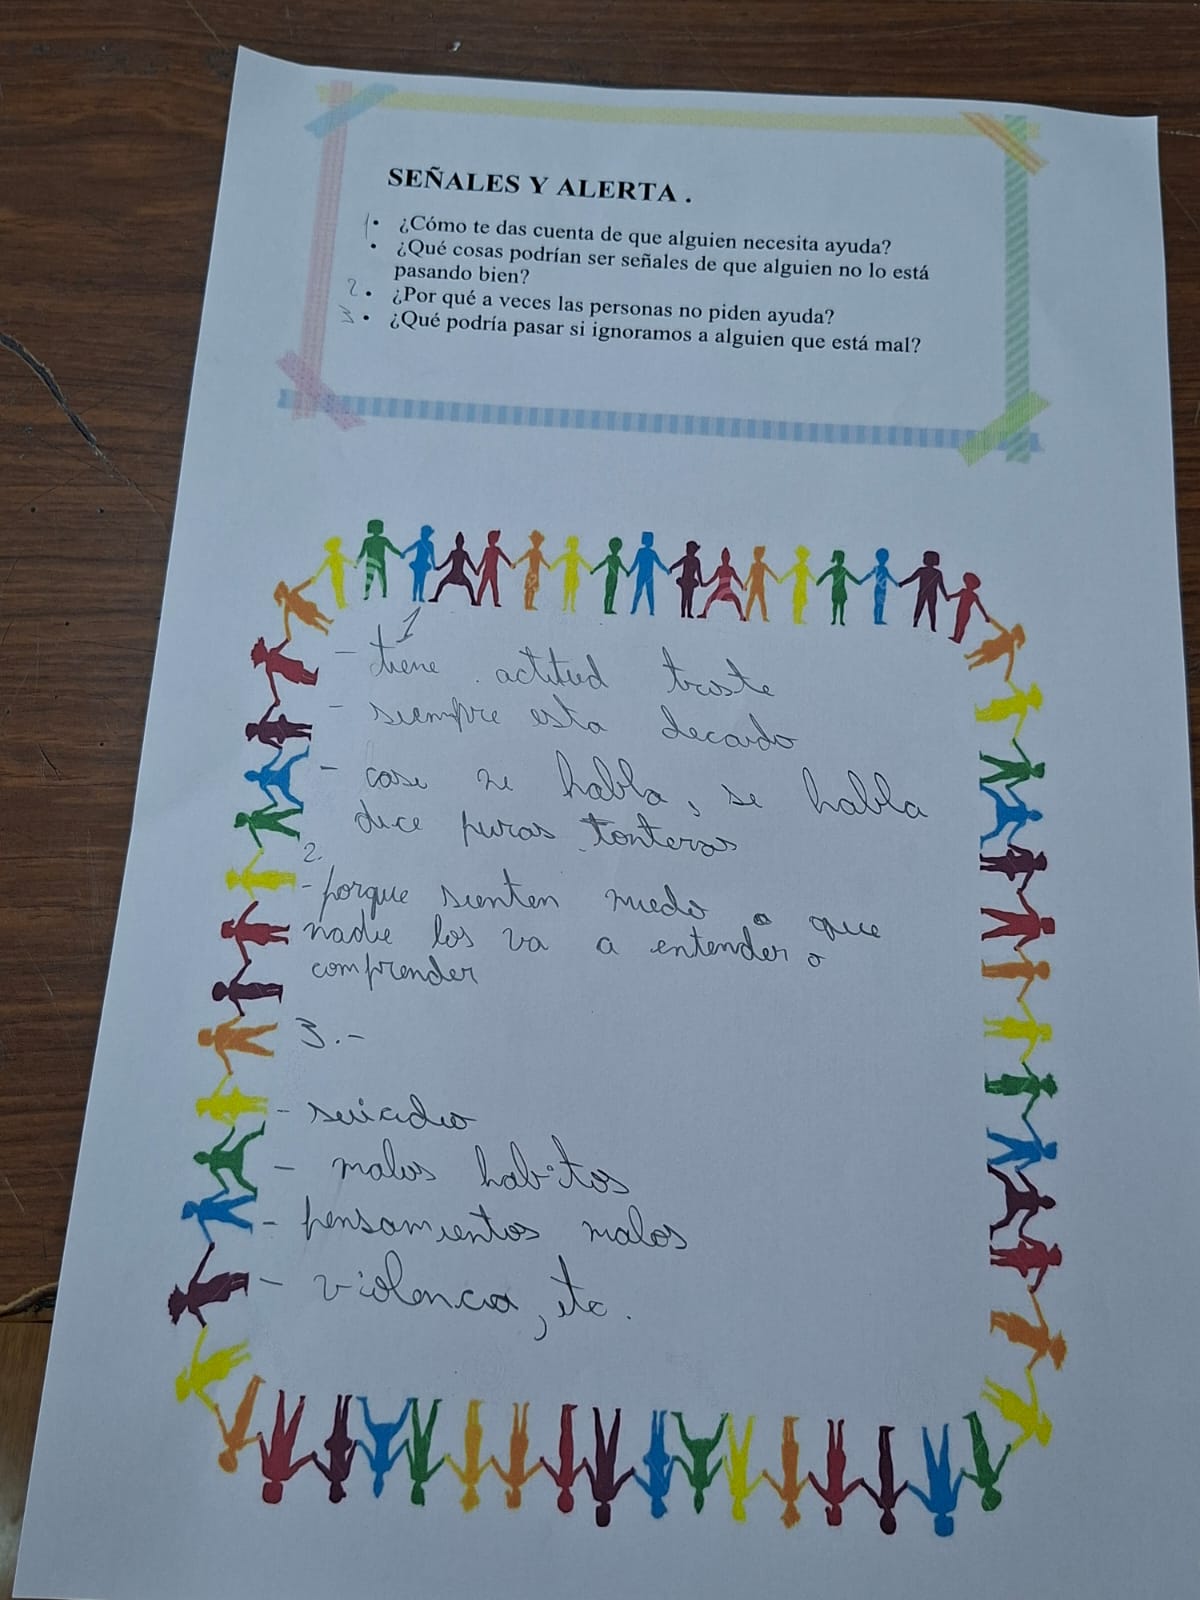 SEÑALES Y ALERTA .
1 • ¿Cómo te das cuenta de que alguien necesita ayuda?
• ¿Qué cosas podrían ser señales de que alguien no lo está
pasando bien?
2 • ¿Por qué a veces las personas no piden ayuda?
3 • ¿Qué podría pasar si ignoramos a alguien que está mal?
1
- tiene actitud triste
- siempre esta decaido
- casi ne habla, se habla
dice puras tonteras
2.
- porque sienten miedo a que
nadie los va a entender o
comprender
3.-
- suicidio
- malos habitos
- pensamientos malos
- violencia, etc.